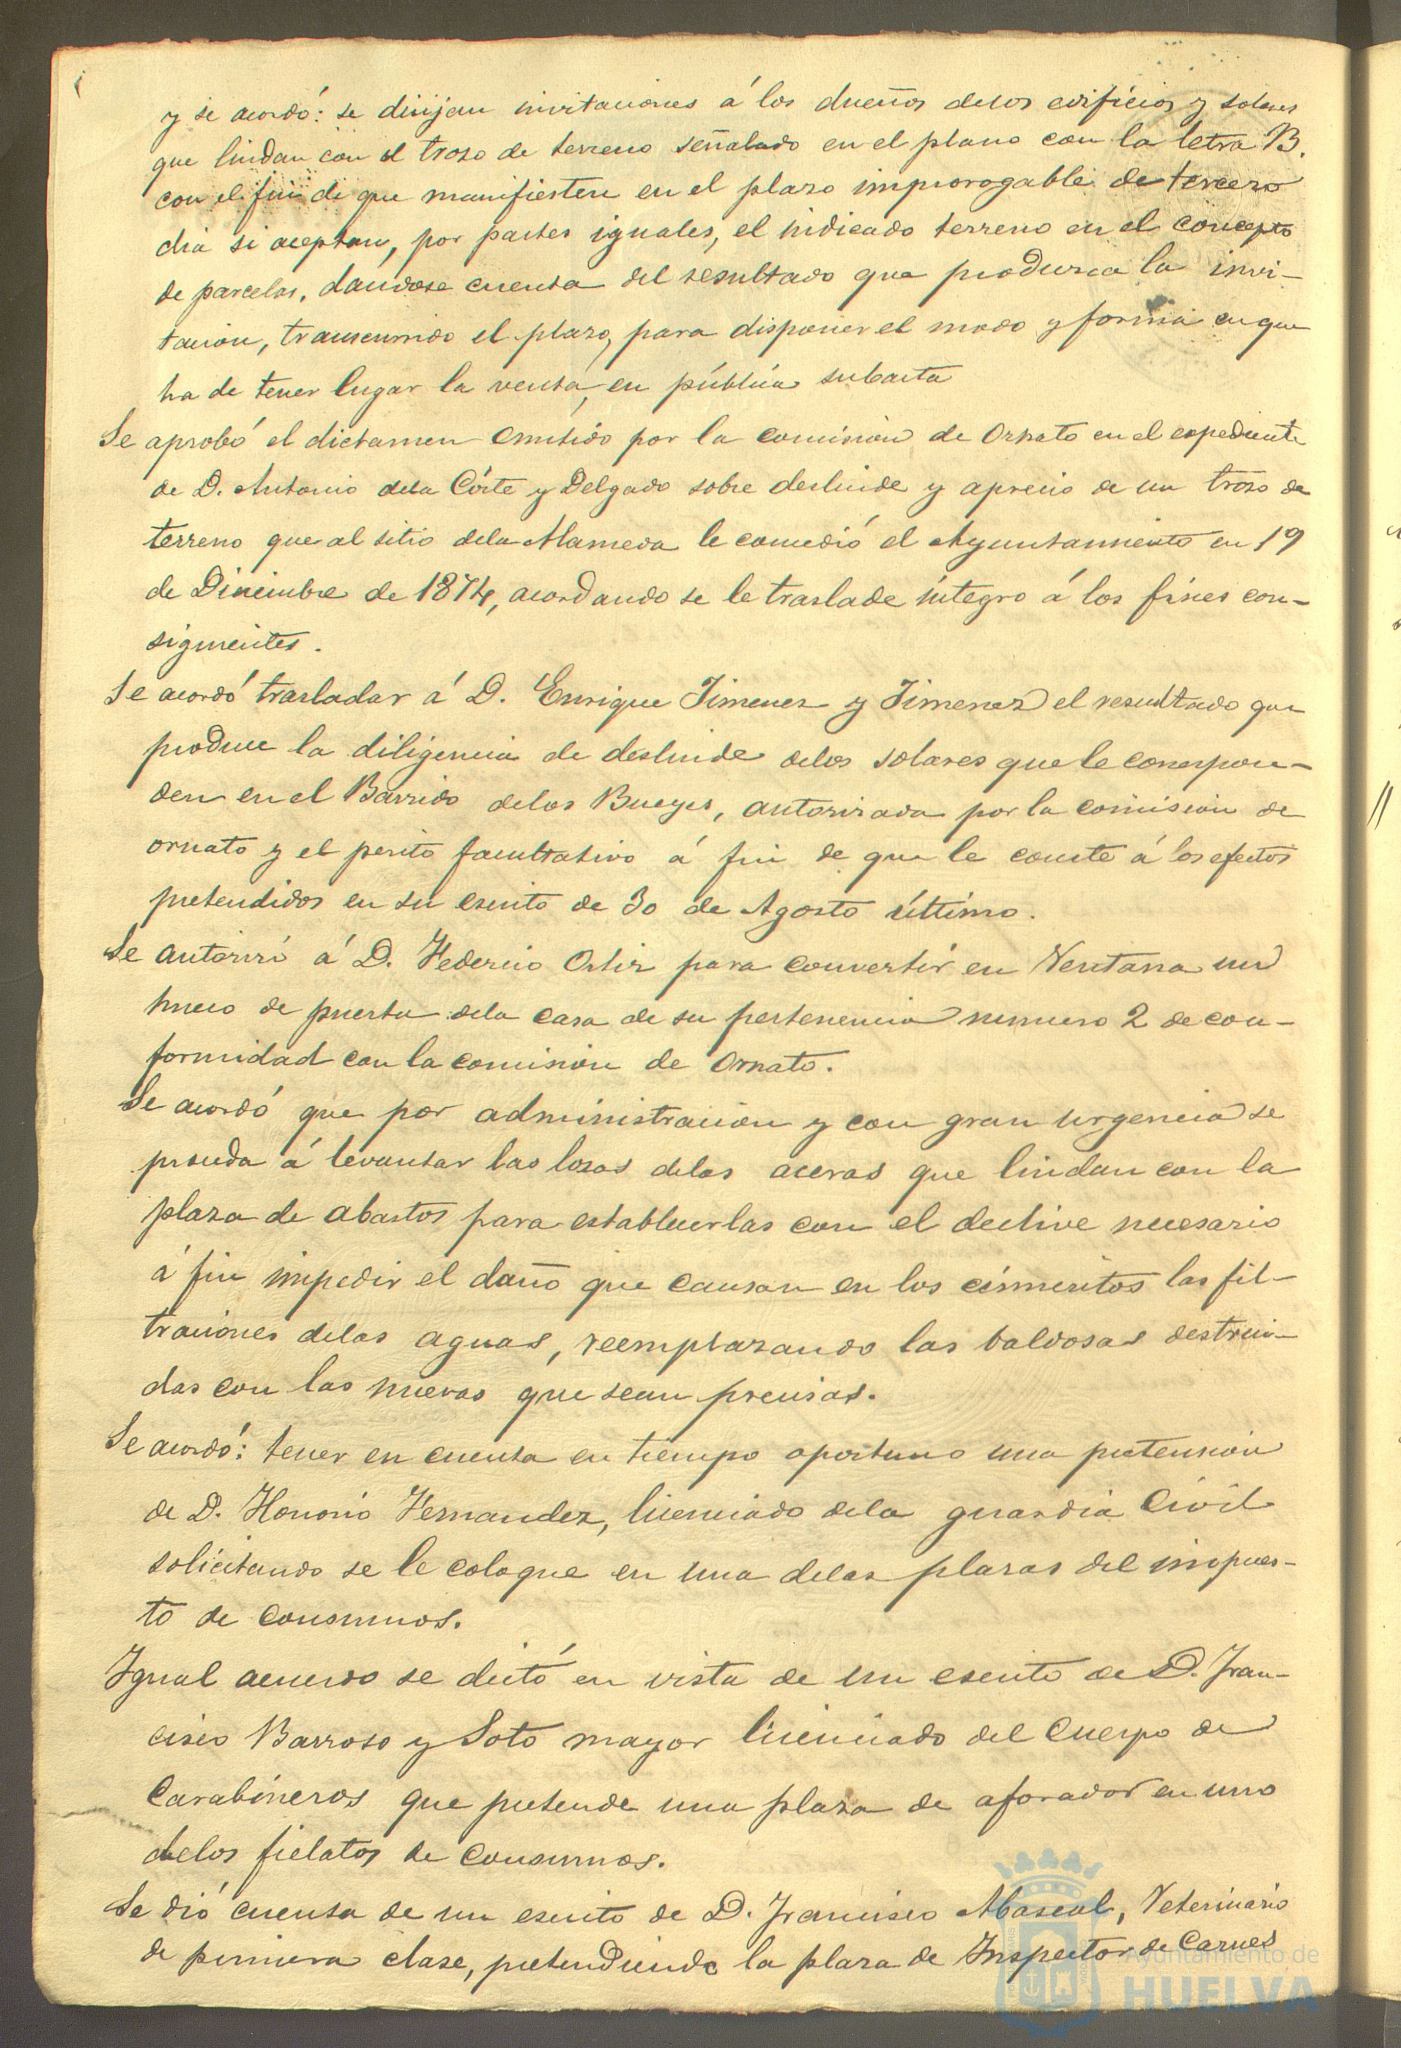 y se acordó: se dirijan invitaciones á los dueños delos edificios y solares
que lindan con el trozo de terreno señalado en el plano con la letra B.
con el fin de que manifiesten en el plazo improrogable de tercero
dia si aceptan, por partes iguales, el indicado terreno en el concepto
de parcelas, dandose cuenta del resultado que produzca la invi-
tacion, transcurrido el plazo, para disponer el modo y forma en que
ha de tener lugar la venta, en pública subasta
Se aprobó el dictamen emitido por la comision de Ornato en el espediente
de D. Antonio dela Córte y Delgado sobre deslinde y aprecio de un trozo de
terreno que al sitio dela Alameda le concedió el Ayuntamiento en 19
de Diciembre de 1874, acordando se le traslade integro á los fines con-
siguientes.
Se acordó trasladar á D. Enrique Jimenez y Jimenez el resultado que
produce la diligencia de deslinde delos solares que le correspon-
den en el Barrido delos Bueyes, autorizada por la comision de
ornato y el perito facultativo á fin de que le conste á los efectos
pretendidos en su escrito de 30 de Agosto último.
Se autorizó á D. Federico Ortiz para convertir en Ventana un
hueco de puerta dela casa de su pertenencia numero 2 de con-
formidad con la comision de Ornato.
Se acordó que por administracion y con gran urgencia se
proceda á levantar las losas delas aceras que lindan con la
plaza de abastos para establecerlas con el declive necesario
á fin impedir el daño que causan en los cimientos las fil-
traciones delas aguas, reemplazando las baldosas destrui-
das con las nuevas que sean precisas.
Se acordó: tener en cuenta en tiempo oportuno una pretension
de D. Honorio Fernandez, licenciado dela guardia Civil
solicitando se le coloque en una delas plazas del impues-
to de consumos.
Igual acuerdo se dictó en vista de un escrito de D. Fran-
cisco Barroso y Soto mayor licenciado del Cuerpo de
Carabineros que pretende una plaza de aforador en uno
delos fielatos de consumos.
Se dió cuenta de un escrito de D. Francisco Mascal, Veterinario
de primera clase, pretendiendo la plaza de Inspector de Carnes
Ayuntamiento de
HUELVA